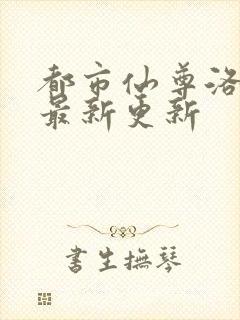 都市仙尊洛
最新更新
书生抚琴